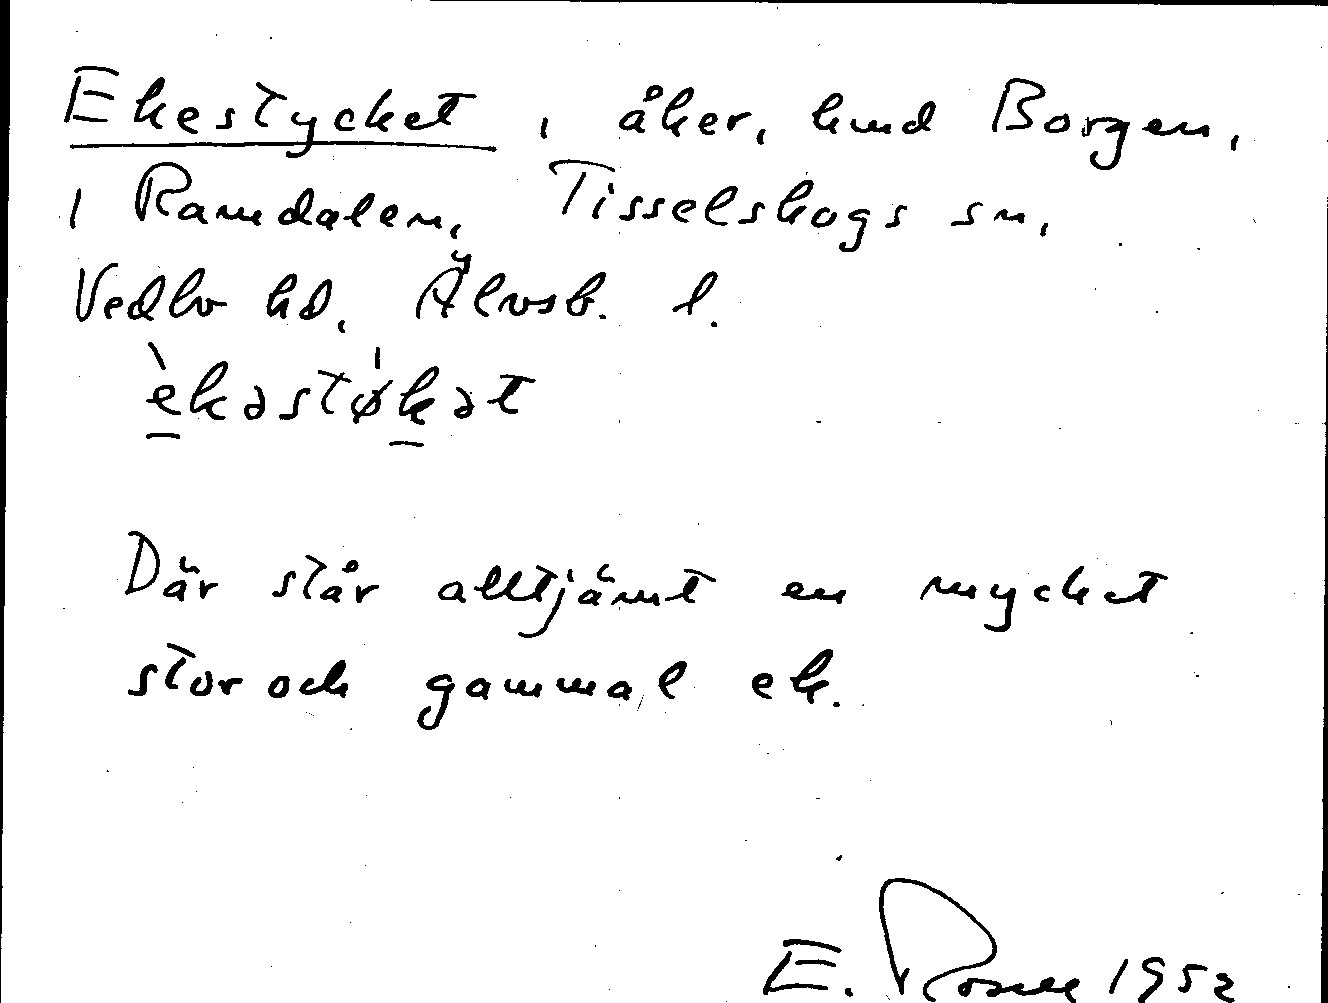 Ekestycket, åker, hmd Borgen,
i Ramdalen, Tisselskogs sn,
Vedbo hd, Älvsb. l.
èkəstø̀kət
Där står alltjämt en mycket
stor och gammal ek.
E. Rosell 1952